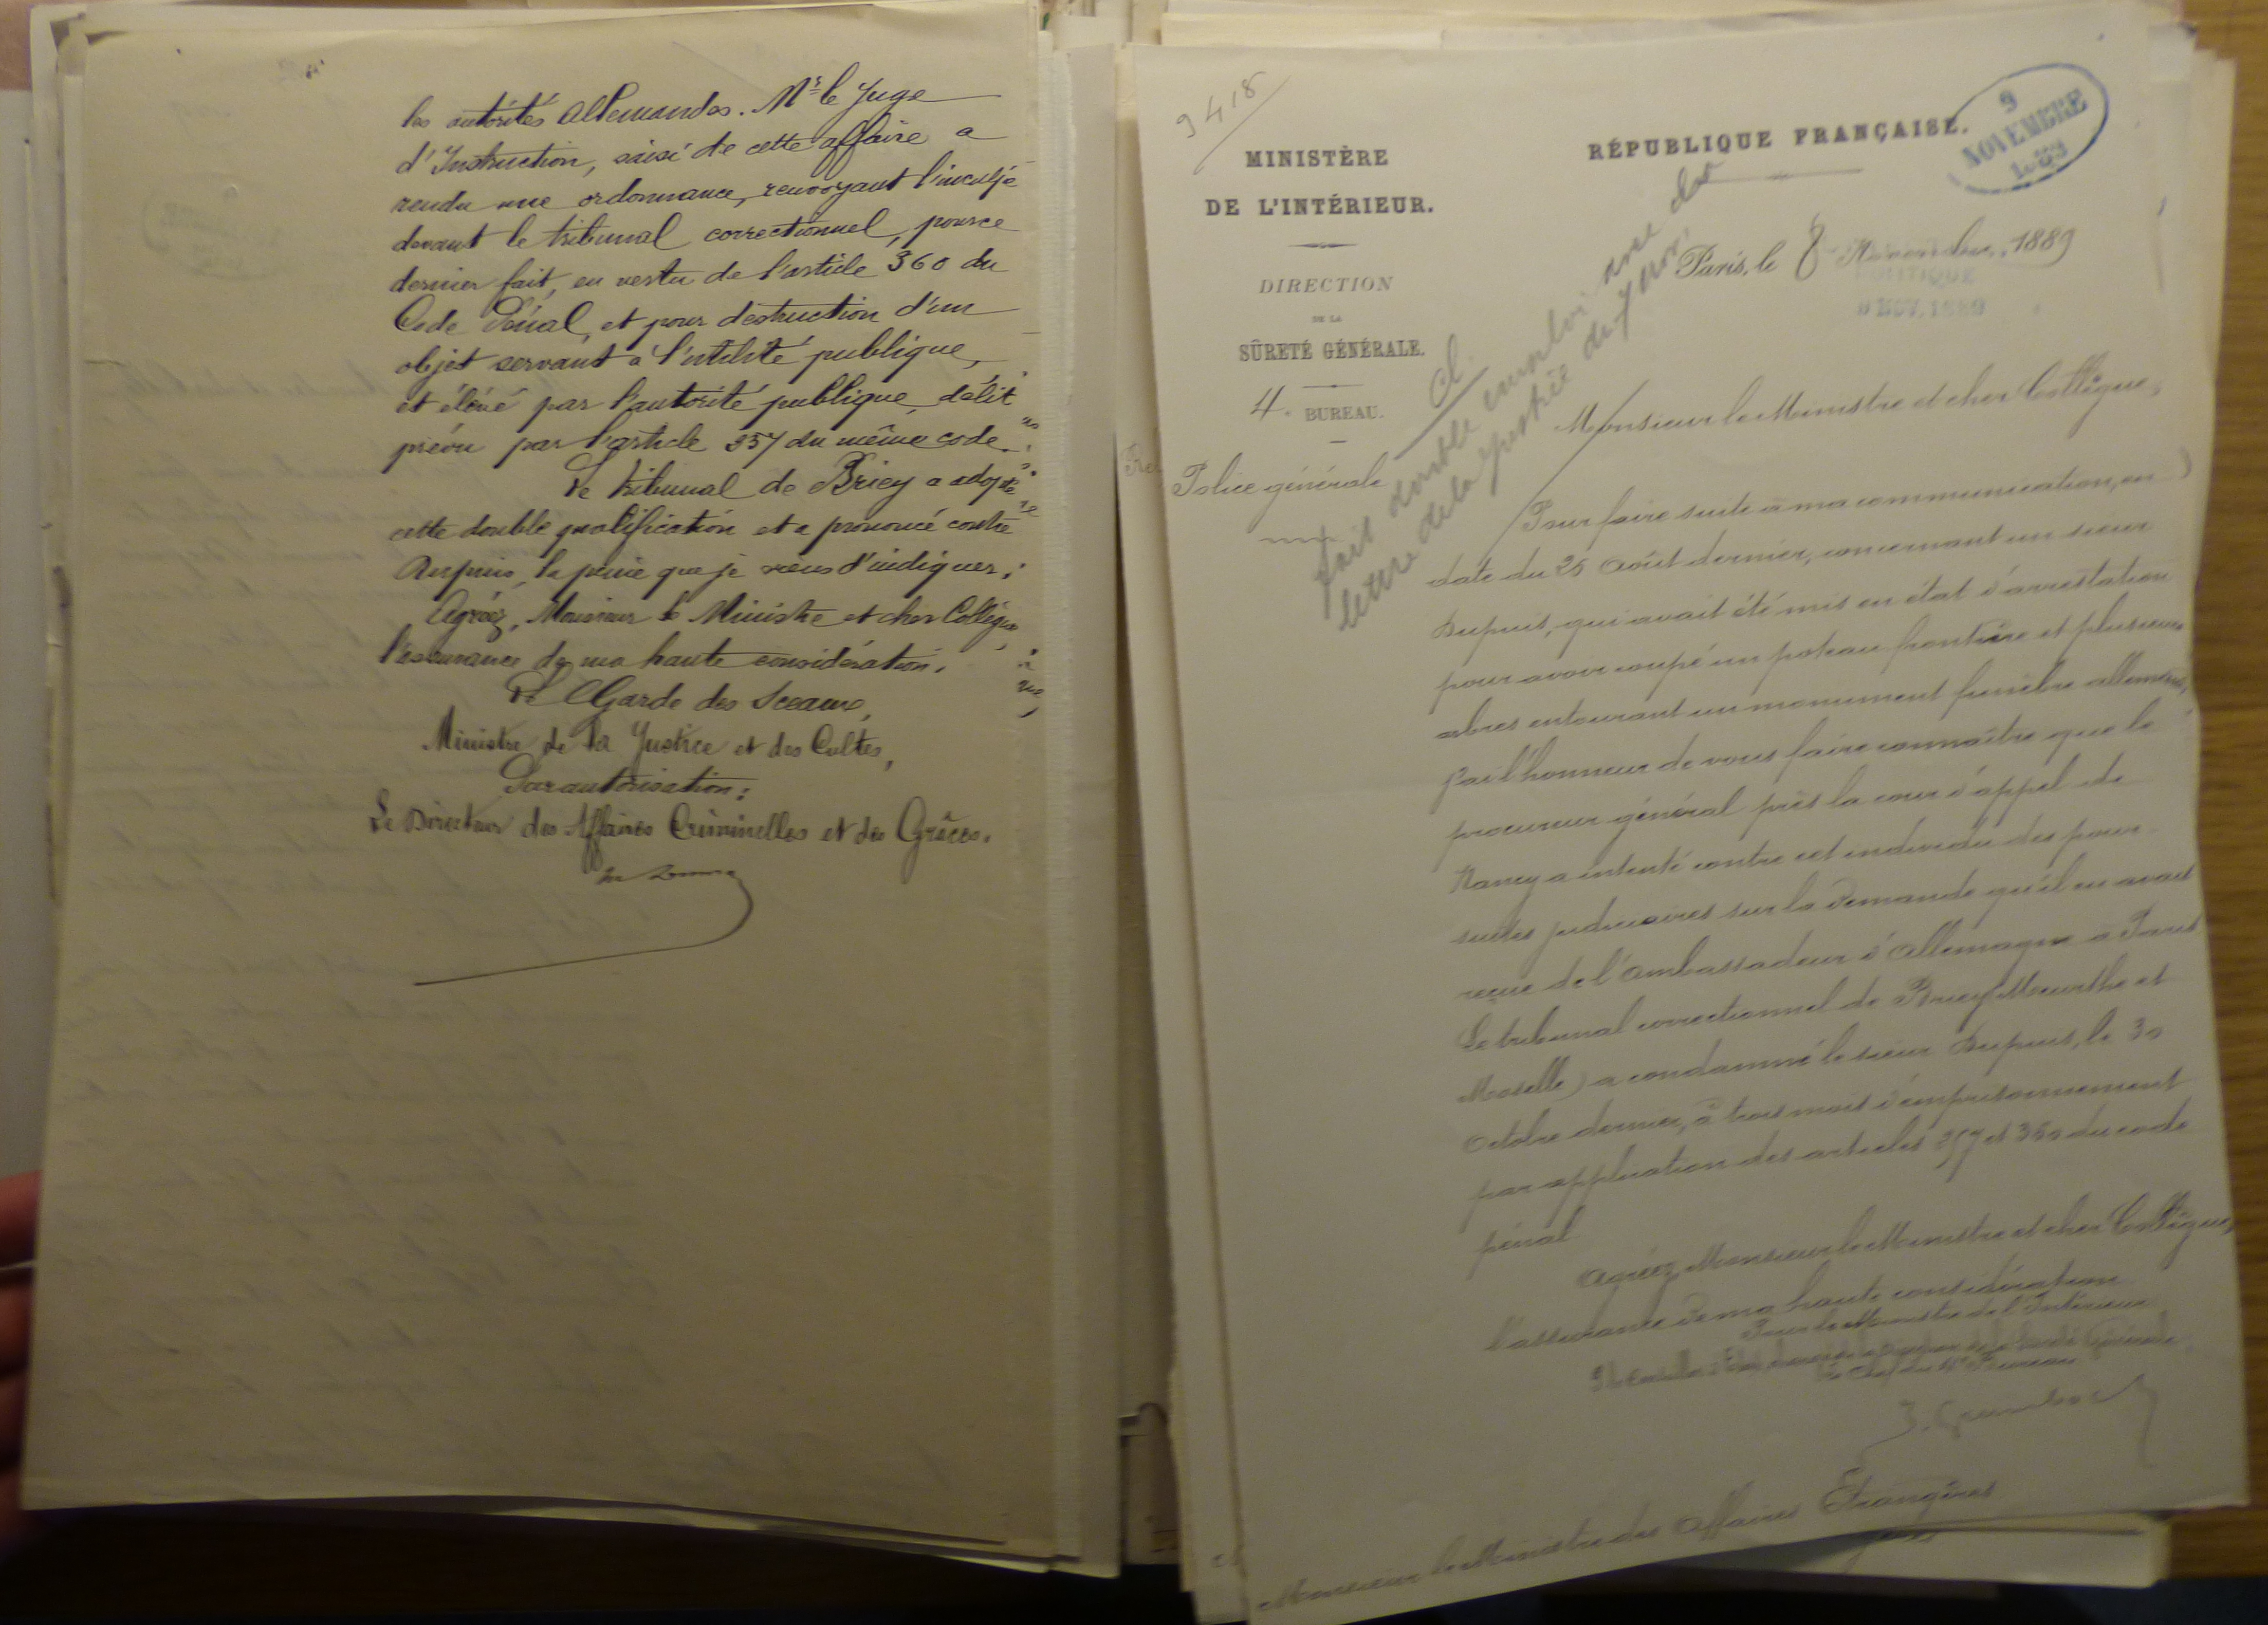 les autorités Allemandes. Mr. le Juge
d'Instruction, saisi de cette affaire a
rendu une ordonnance, renvoyant l'inculpé
devant le tribunal correctionnel, pour ce
dernier fait, en vertu de l'article 360 du
Code Pénal, et pour destruction d'un
objet servant à l'utilité publique,
et élevé par l'autorité publique, délit
prévu par l'article 257 du même code.
Le tribunal de Briey a adopté
cette double qualification et a prononcé contre
Dupuis, la peine que je viens d'indiquer.
Agréez, Monsieur le Ministre et cher Collègue,
l'assurance de ma haute considération.
Le Garde des Sceaux,
Ministre de la Justice et des Cultes,
Par autorisation:
Le Directeur des Affaires Criminelles et des Grâces.
9418
MINISTÈRE
DE L'INTÉRIEUR.
DIRECTION
DE LA
SÛRETÉ GÉNÉRALE.
4e BUREAU.
Police générale
RÉPUBLIQUE FRANÇAISE.
9
NOVEMBRE
1889
Paris, le 8 Novembre 1889
POLITIQUE
9 NOV. 1889
Cl
fait double emploi avec la
lettre de la Justice du 7 nov.
Monsieur le Ministre et cher Collègue,
Pour faire suite à ma communication, en
date du 25 Août dernier, concernant un sieur
Dupuis, qui avait été mis en état d'arrestation
pour avoir coupé un poteau frontière et plusieurs
arbres entourant un monument funèbre allemand,
j'ai l'honneur de vous faire connaître que le
procureur général près la cour d'appel de
Nancy a intenté contre cet individu des pour-
suites judiciaires sur la demande qu'il en avait
reçue de l'Ambassadeur d'Allemagne à Paris
Le tribunal correctionnel de Briey (Meurthe et
Moselle) a condamné le sieur Dupuis, le 30
Octobre dernier, à trois mois d'emprisonnement
par application des articles 257 et 360 du code
pénal
Agréez, Monsieur le Ministre et cher Collègue,
l'assurance de ma haute considération
Pour le Ministre de l'Intérieur
Le Chef du 4e Bureau
Monsieur le Ministre des Affaires Étrangères